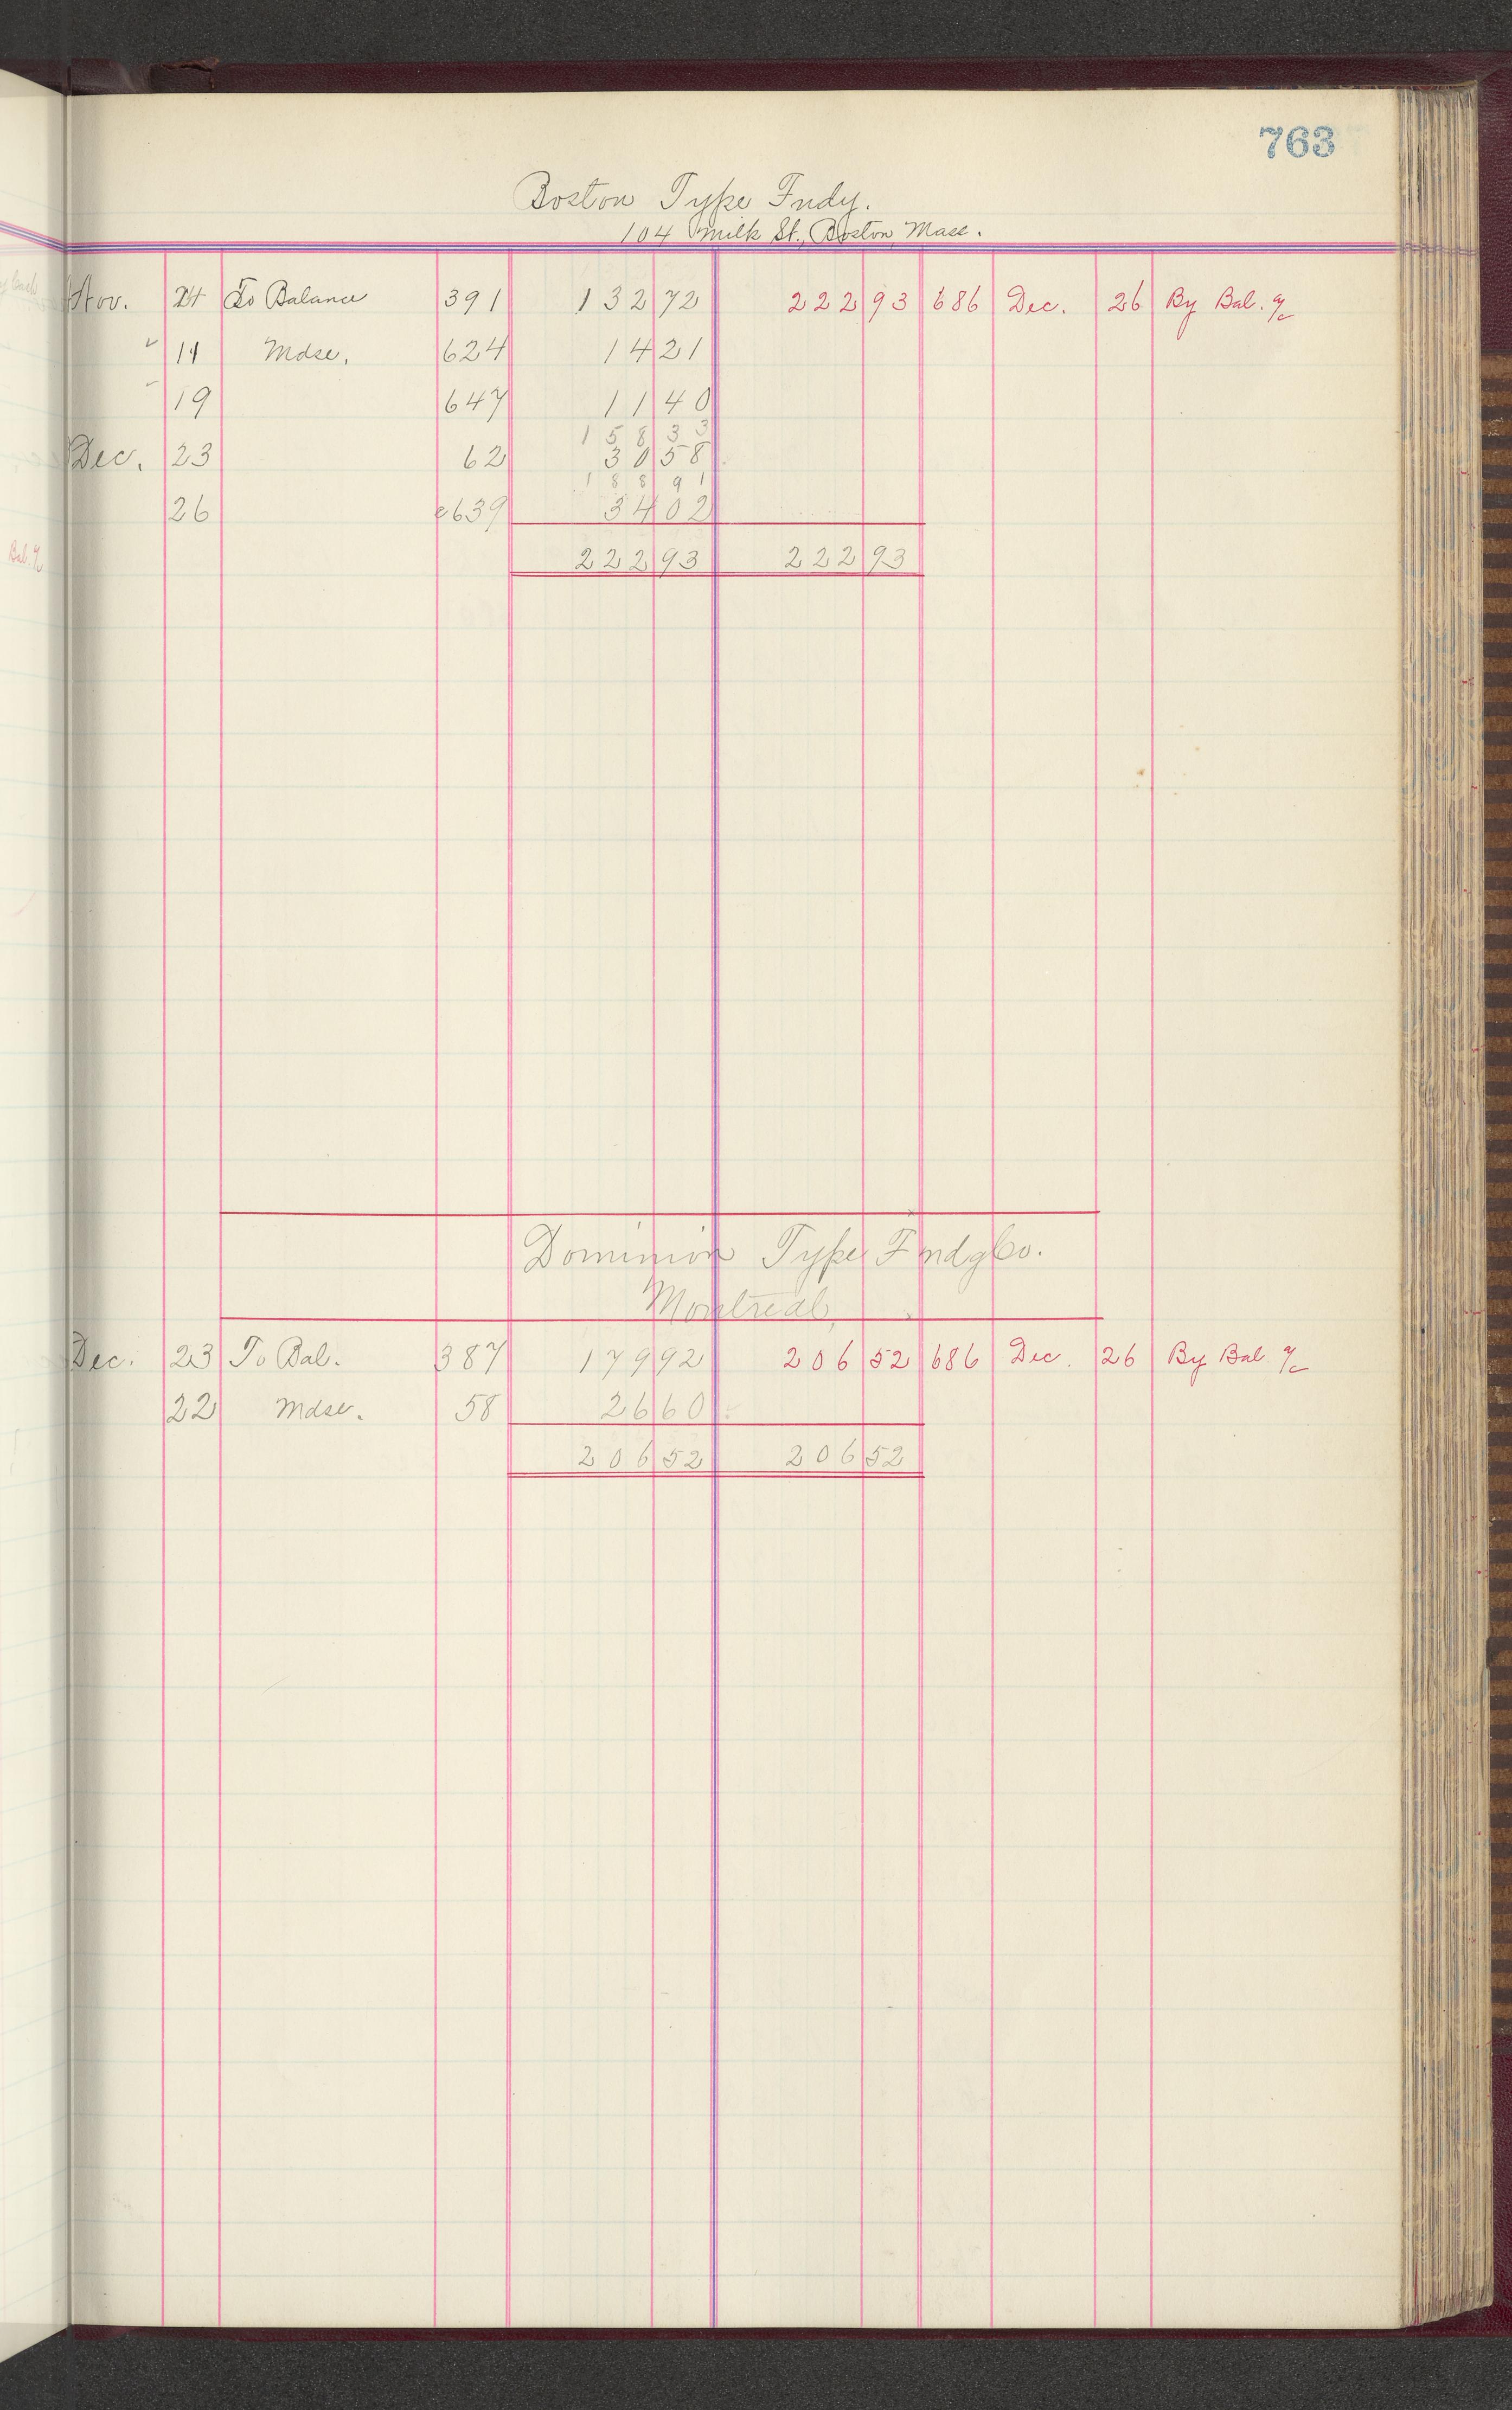 763
Boston Type Fndy.
104 Milk St., Boston, Mass.
Nov. 24 To Balance 391 132 72 222 93 686 Dec. 26 By Bal. a/c
" 14 Mdse. 624 14 21
" 19 647 11 40
158 33
Dec. 23 62 30 58
188 91
26 c639 34 02
222 93 222 93
Bal. a/c
Dominion Type Fndg Co.
Montreal,
Dec. 23 To Bal. 387 179 92 206 52 686 Dec. 26 By Bal. a/c
22 Mdse. 58 26 60
206 52 206 52